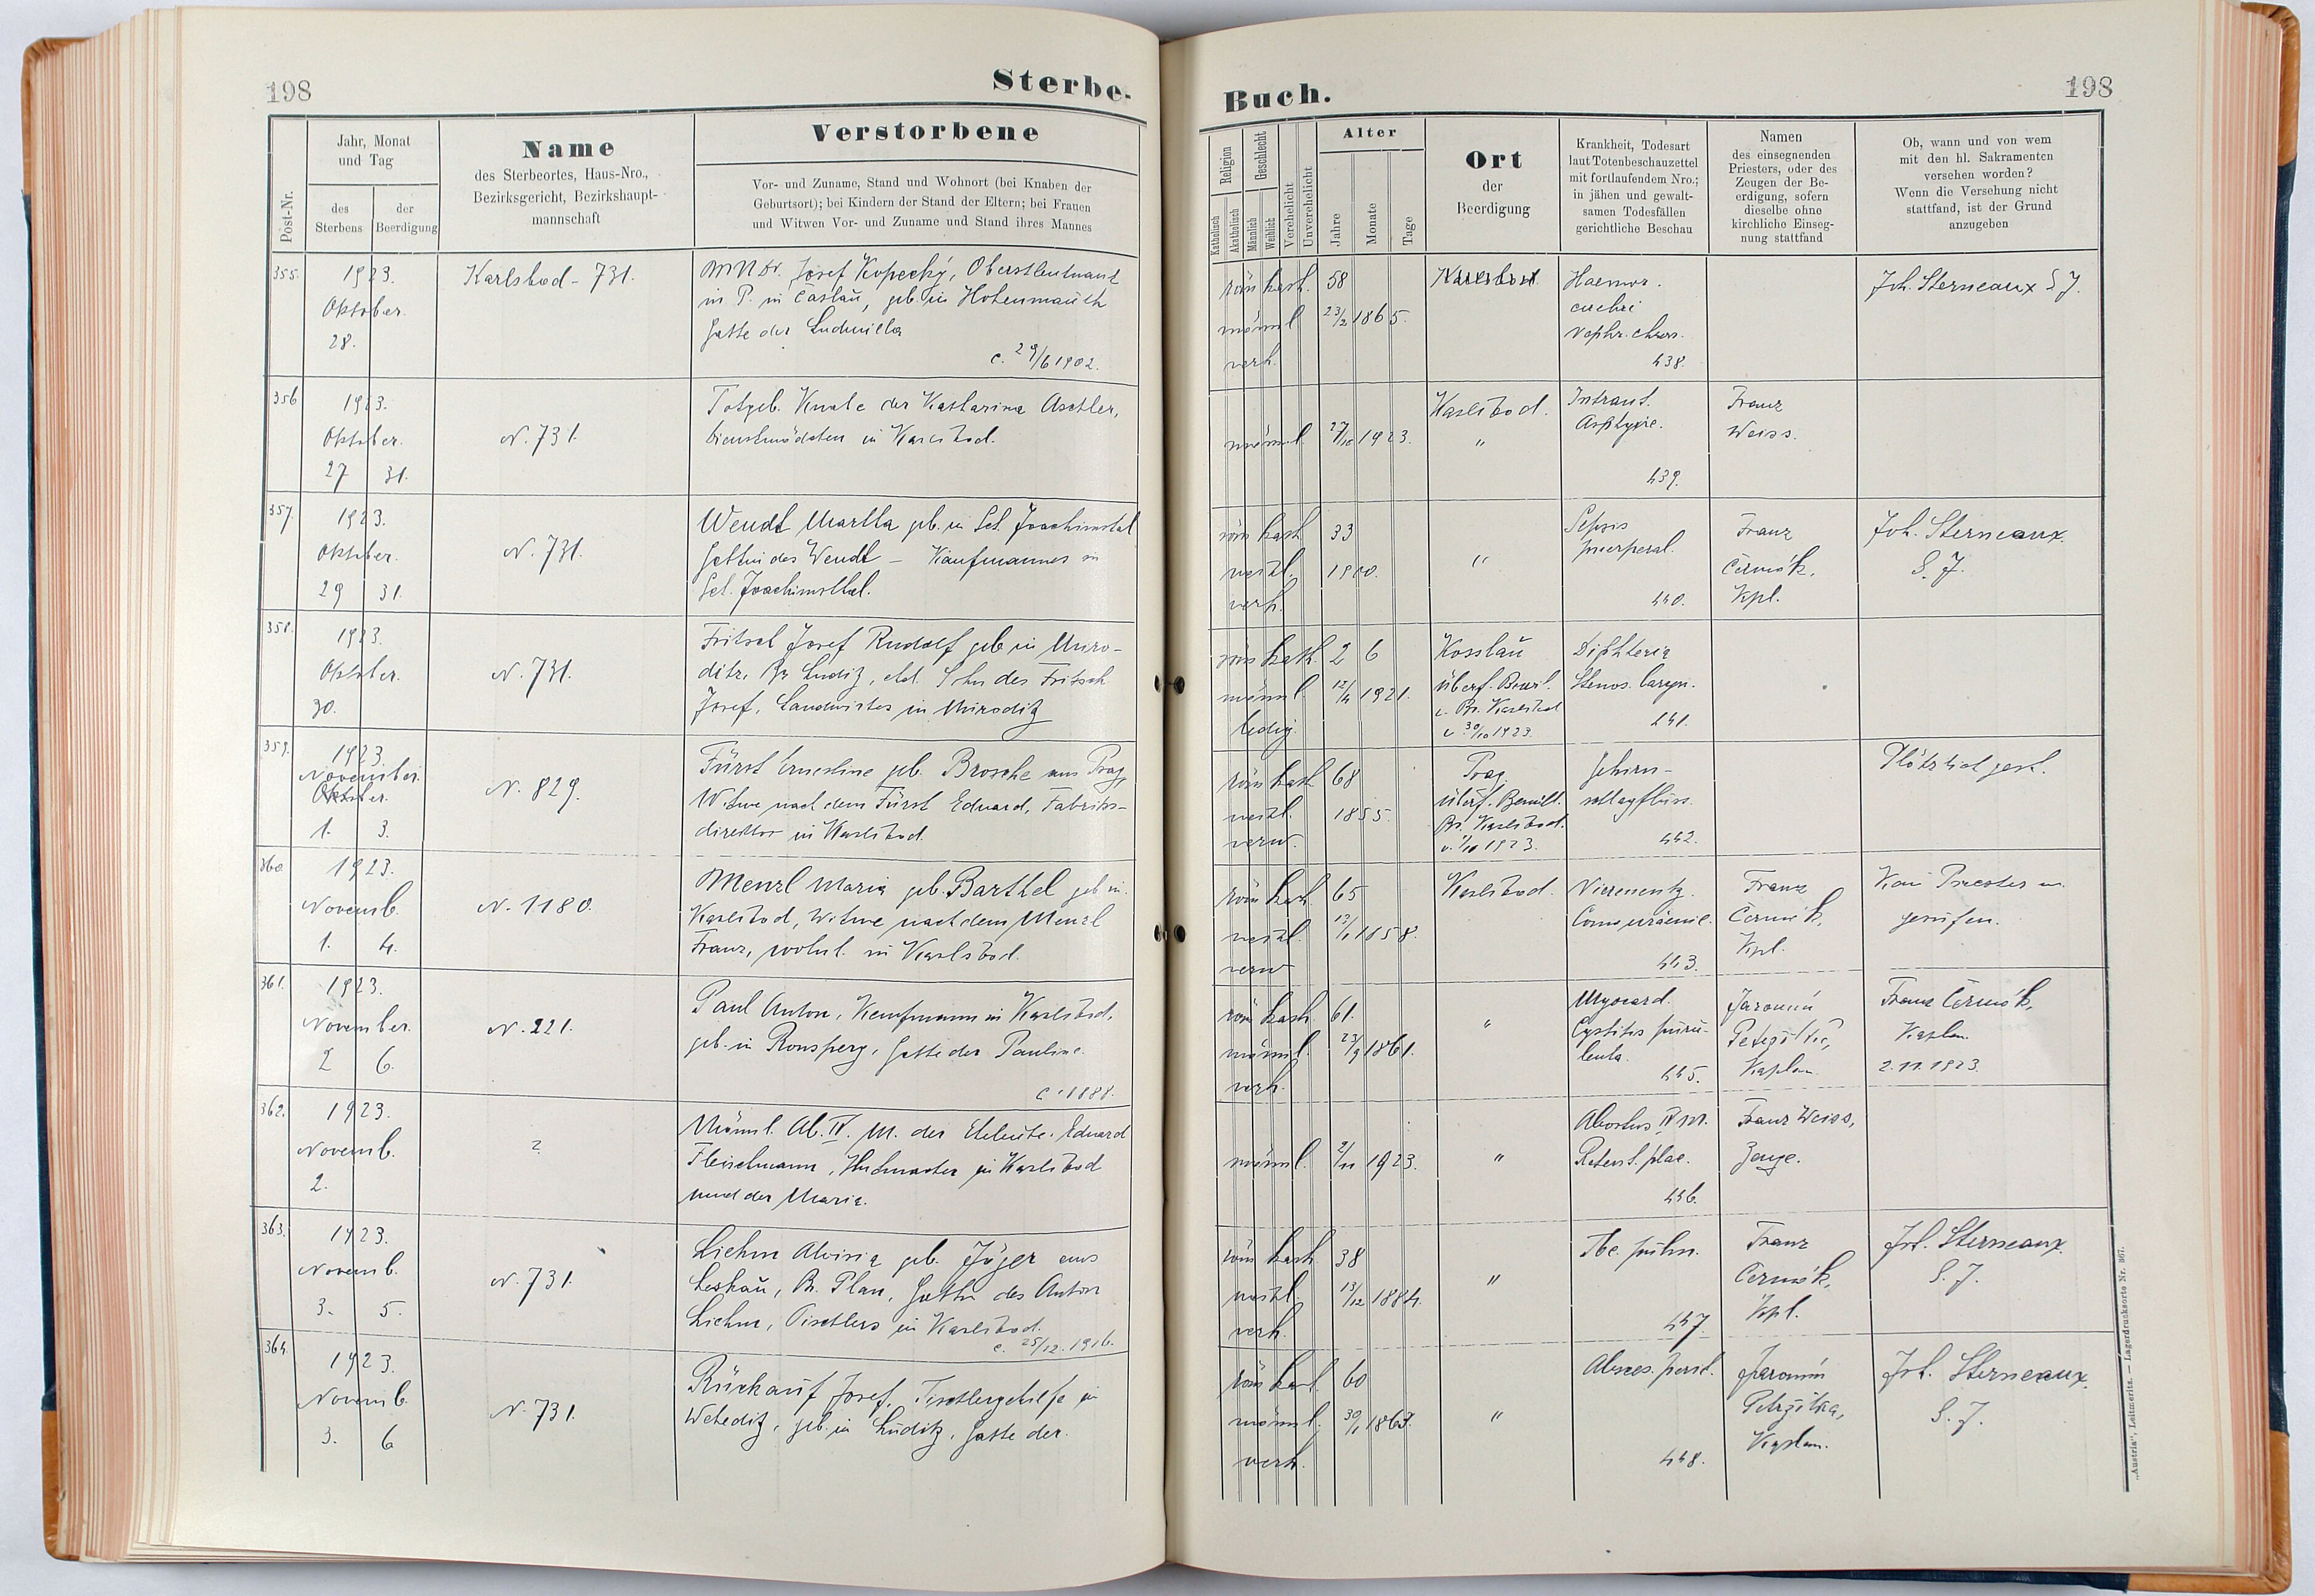 198
Sterbe-
Buch.
198
Post-Nr.
Jahr, Monat
und Tag
des
Sterbens
der
Beerdigung
Name
des Sterbeortes, Haus-Nro.,
Bezirksgericht, Bezirkshaupt-
mannschaft
Verstorbene
Vor- und Zuname, Stand und Wohnort (bei Knaben der
Geburtsort); bei Kindern der Stand der Eltern; bei Frauen
und Witwen Vor- und Zuname und Stand ihres Mannes
Religion
Katholisch
Akatholisch
Geschlecht
Männlich
Weiblich
Verehelicht
Unverehelicht
Alter
Jahre
Monate
Tage
Ort
der
Beerdigung
Krankheit, Todesart
laut Totenbeschauzettel
mit fortlaufendem Nro.;
in jähen und gewalt-
samen Todesfällen
gerichtliche Beschau
Namen
des einsegnenden
Priesters, oder des
Zeugen der Be-
erdigung, sofern
dieselbe ohne
kirchliche Einseg-
nung stattfand
Ob, wann und von wem
mit den hl. Sakramenten
versehen worden?
Wenn die Versehung nicht
stattfand, ist der Grund
anzugeben
355.
1923.
Oktober.
28.
Karlsbad - 731.
MUDr. Josef Kopecký, Oberstleutnant
in P. in Častau, geb. in Hohenmauth
Gatte der Ludmilla
c. 29/6 1902.
röm kath.
männl
verh.
58
23/2 1865.
Karlsbad
Haemor.
Nephr. chron.
438.
Joh. Sterneaux S J.
356
1923.
Oktober.
27 31.
N. 731.
Totgeb. Knabe der Katharina
Dienstmädchen in Karlsbad.
männl.
27/10 1923.
Karlsbad.
"
Intraut.
Asphyxie.
439.
Franz
Weiss.
357.
1923.
Oktober.
29 31.
N. 731.
Wendt Martha geb. in Sct. Joachimstal
Gattin des Wendt - Kaufmannes in
Sct. Joachimsthal.
röm kath
weibl.
verh.
33
1900.
"
Sepsis
puerperal.
440.
Franz
Čermák,
Kpl.
Joh. Sterneaux.
S. J.
358.
1923.
Oktober.
30.
N. 731.
Fritsch Josef Rudolf geb in Miro-
ditz, Bz Luditz, ehl. Sohn des Fritsch
Josef, Landwirtes in Miroditz
röm kath.
männl.
ledig.
2 6
12/4 1921.
Kosslau
überf. Bewil.
Bz. Karlsbad
v 30/10 1923.
Diphteria
Stenos. laryn.
441.
359.
1923.
November.
Oktober.
1. 3.
N. 829.
Fürst Ernestine geb. Brosche aus Prag,
Witwe nach dem Fürst Eduard, Fabriks-
direktor in Karlsbad.
röm kath
weibl.
verw.
68
1855.
Prag.
überf. Bewill.
Bz. Karlsbad.
1923.
Gehirn-
schlagfluss.
442.
Plötzlich gest.
360
1923.
Novemb.
1. 4.
N. 1180.
Menzl Maria geb. Barthel geb in
Karlsbad, Witwe nach dem Menzl
Franz, wohnh. in Karlsbad.
röm kath.
weibl.
verw
65
1858.
Karlsbad.
Nierenentz.
443.
Franz
Čermák,
Kpl.
Kein Priester
gerufen.
361.
1923.
November.
2 6.
N. 221.
Paul Anton, Kaufmann in Karlsbad,
geb. in Ronsperg, Gatte der Pauline.
c. 1888.
röm kath
männl.
verh.
61.
23/9 1861.
"
Myocard.
Cystitis puru-
lenta.
445.
Jaromir
Kaplan
Franz Čermák,
Kaplan
2. 11. 1923.
362.
1923.
Novemb.
2.
?
Männl. Ab. IV. M. der Eheleute Eduard
Fleischmann, in Karlsbad
und der Maria.
männl.
2/11 1923.
"
Abortus IV M.
Retent. plac.
446.
Franz Weiss,
Zeuge.
363.
1923.
Novemb.
3. 5.
N. 731.
Liehm Aloisia geb. Jäger aus
Leskau, Bz. Plan, Gattin des Anton
Liehm, Tischlers in Karlsbad.
c. 25/12. 1916.
röm kath
weibl.
verh.
38
13/12 1884.
"
Tbc. pulm.
447.
Franz
Čermák,
Kpl.
Joh. Sterneaux.
S. J.
364.
1923.
Novemb.
3. 6
N. 731.
Rückauf Josef, Tischlergehilfe in
Weheditz, geb. in Luditz, Gatte der.
röm kath.
männl.
verh.
60
"
448.
Jaromir
Petržilka,
Kaplan.
Joh. Sterneaux.
S. J.
„Austria", Leitmeritz. — Lagerdrucksorte Nr. 867.